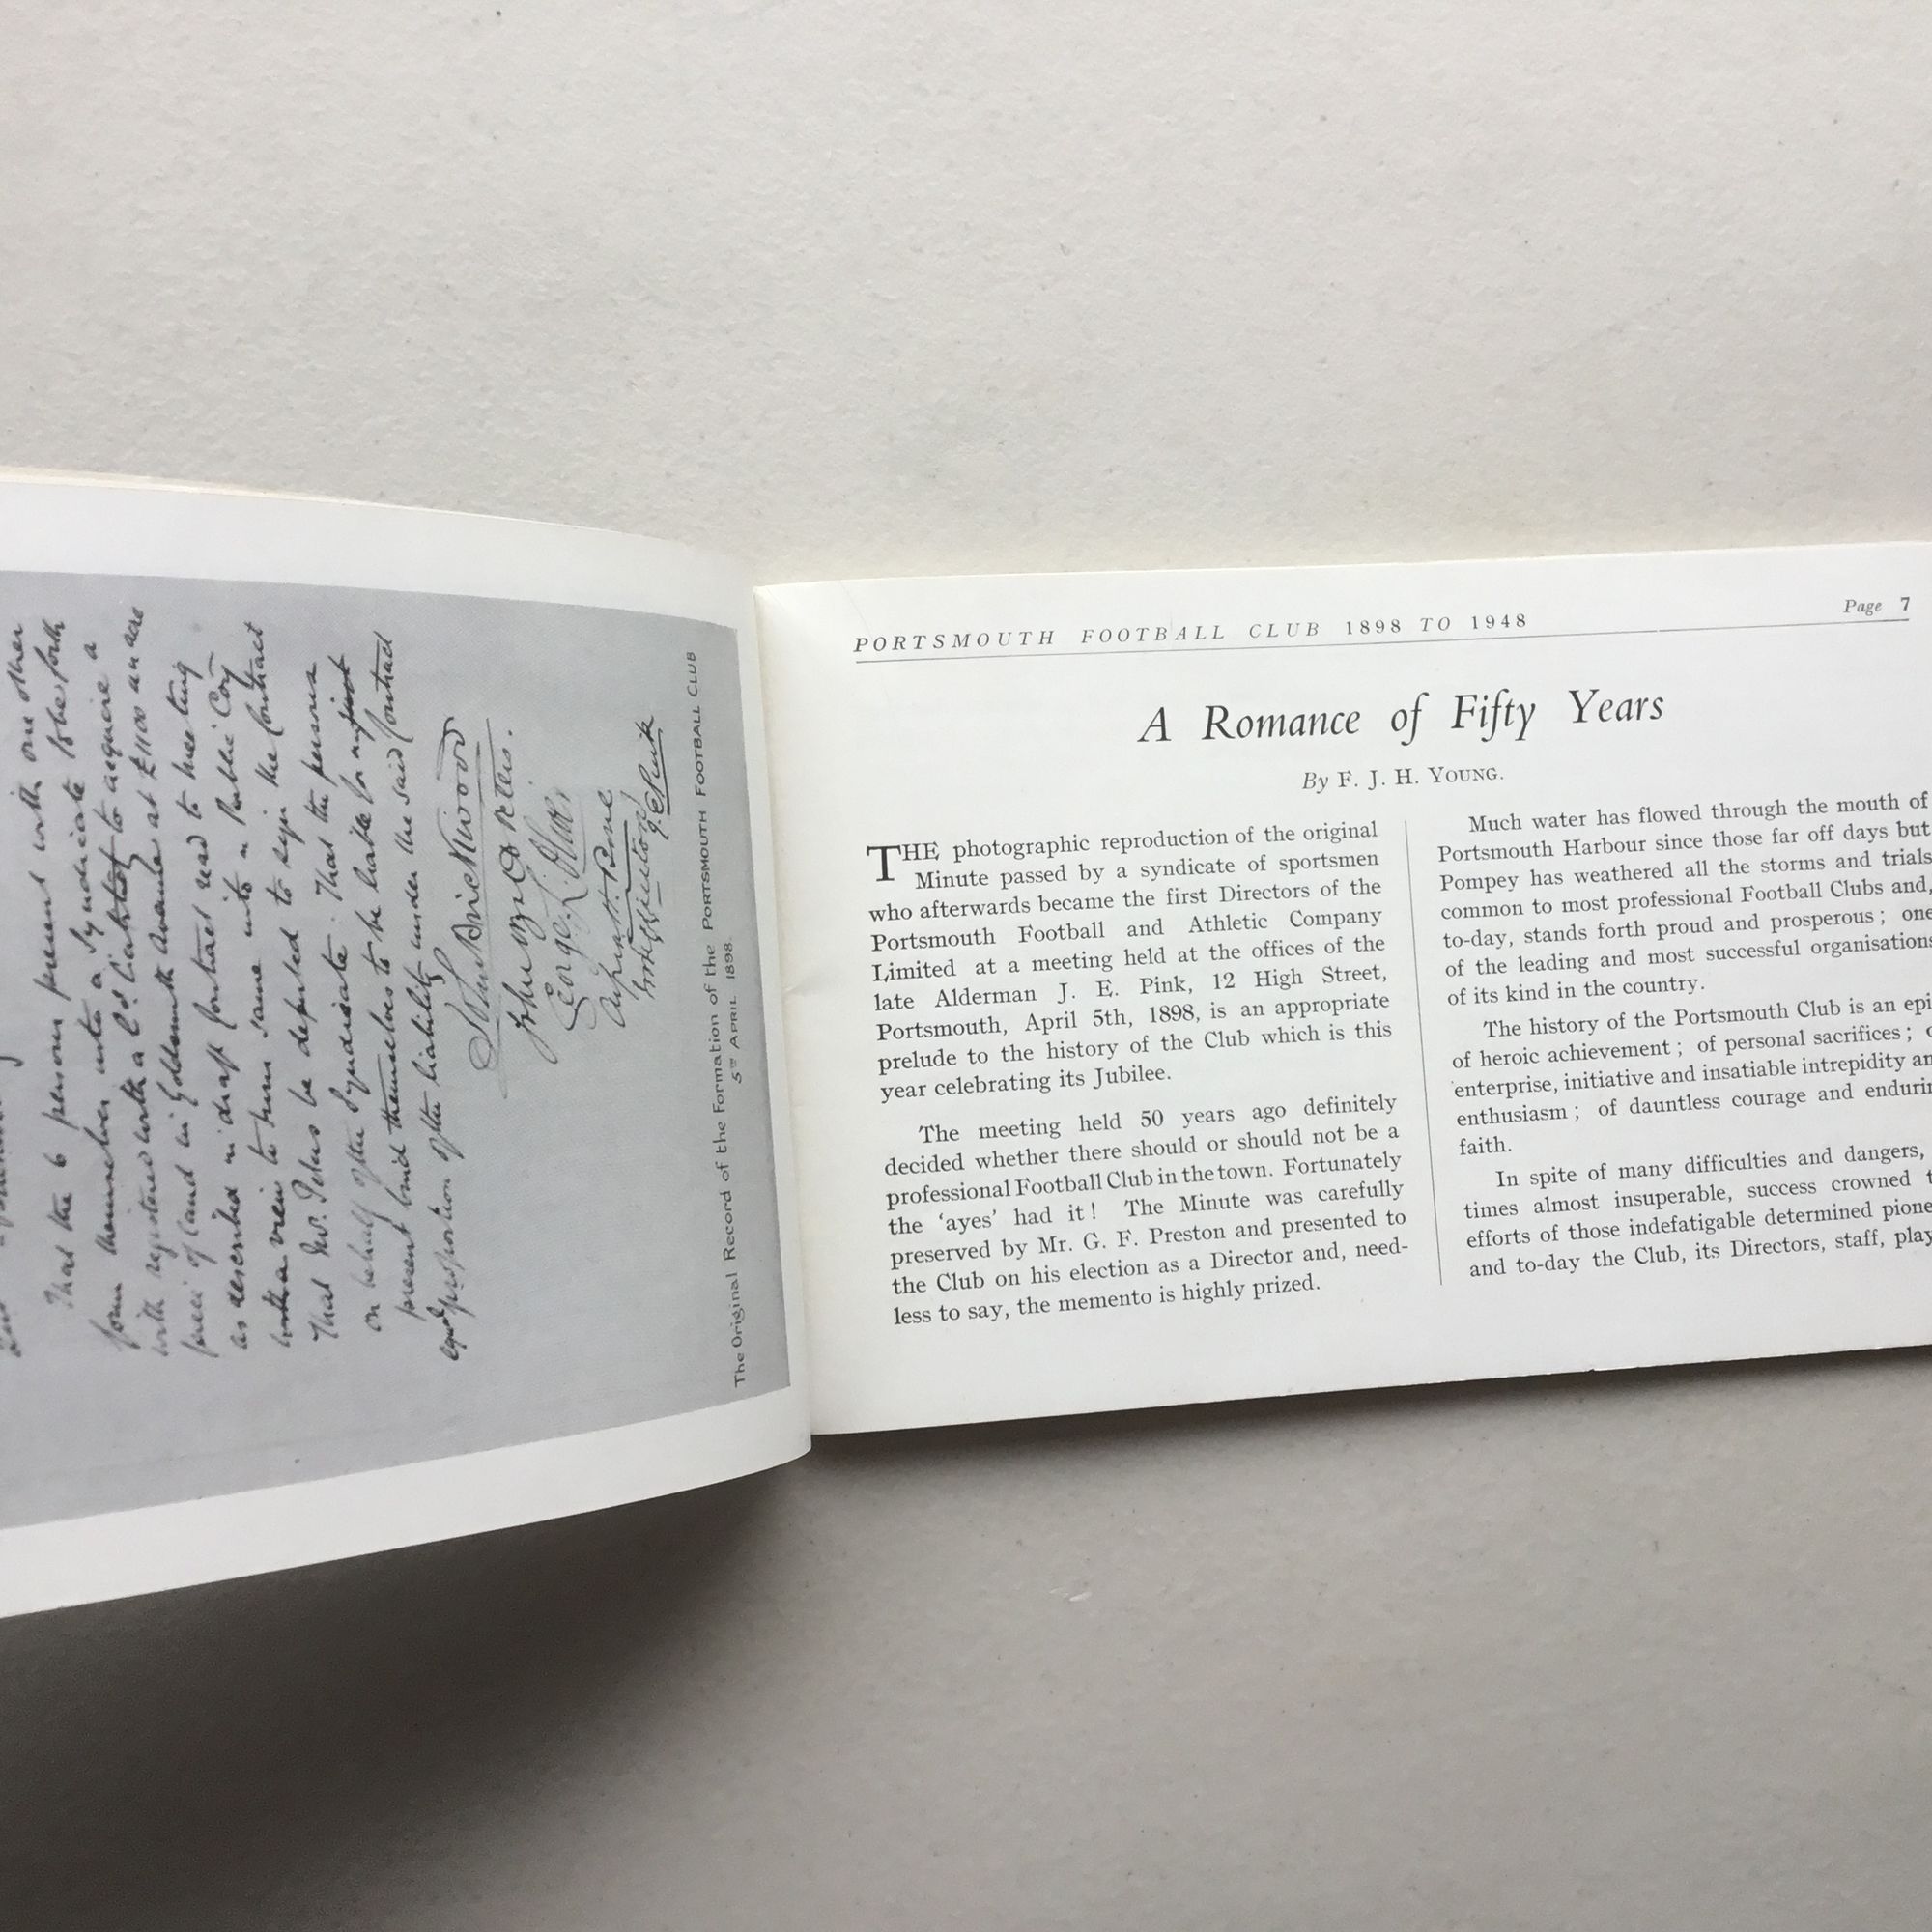 That the 6 persons present with one other
form themselves into a Syndicate to be forth
with registered with a Ld liability to acquire a
piece of land in Goldsmith Avenue at £1100 an acre
as described in draft Contract read to meeting
with a view to turn same into a Public Coy
That Mr. Peters be deputed to sign the Contract
on behalf of the Syndicate. That the persons
present bind themselves to be liable for
equal proportion of the liability under the said Contract
John Brickwood
John Peters.
George L. Oliver
Alfred H. Bone
J. E. Pink
The Original Record of the Formation of the PORTSMOUTH FOOTBALL CLUB
5TH APRIL 1898.
PORTSMOUTH FOOTBALL CLUB 1898 TO 1948
Page 7
A Romance of Fifty Years
By F. J. H. YOUNG.
THE photographic reproduction of the original
Minute passed by a syndicate of sportsmen
who afterwards became the first Directors of the
Portsmouth Football and Athletic Company
Limited at a meeting held at the offices of the
late Alderman J. E. Pink, 12 High Street,
Portsmouth, April 5th, 1898, is an appropriate
prelude to the history of the Club which is this
year celebrating its Jubilee.
The meeting held 50 years ago definitely
decided whether there should or should not be a
professional Football Club in the town. Fortunately
the 'ayes' had it! The Minute was carefully
preserved by Mr. G. F. Preston and presented to
the Club on his election as a Director and, need-
less to say, the memento is highly prized.
Much water has flowed through the mouth of
Portsmouth Harbour since those far off days but
Pompey has weathered all the storms and trials
common to most professional Football Clubs and,
to-day, stands forth proud and prosperous; one
of the leading and most successful organisations
of its kind in the country.
The history of the Portsmouth Club is an epi
of heroic achievement; of personal sacrifices;
enterprise, initiative and insatiable intrepidity an
enthusiasm; of dauntless courage and enduri
faith.
In spite of many difficulties and dangers,
times almost insuperable, success crowned t
efforts of those indefatigable determined pione
and to-day the Club, its Directors, staff, play